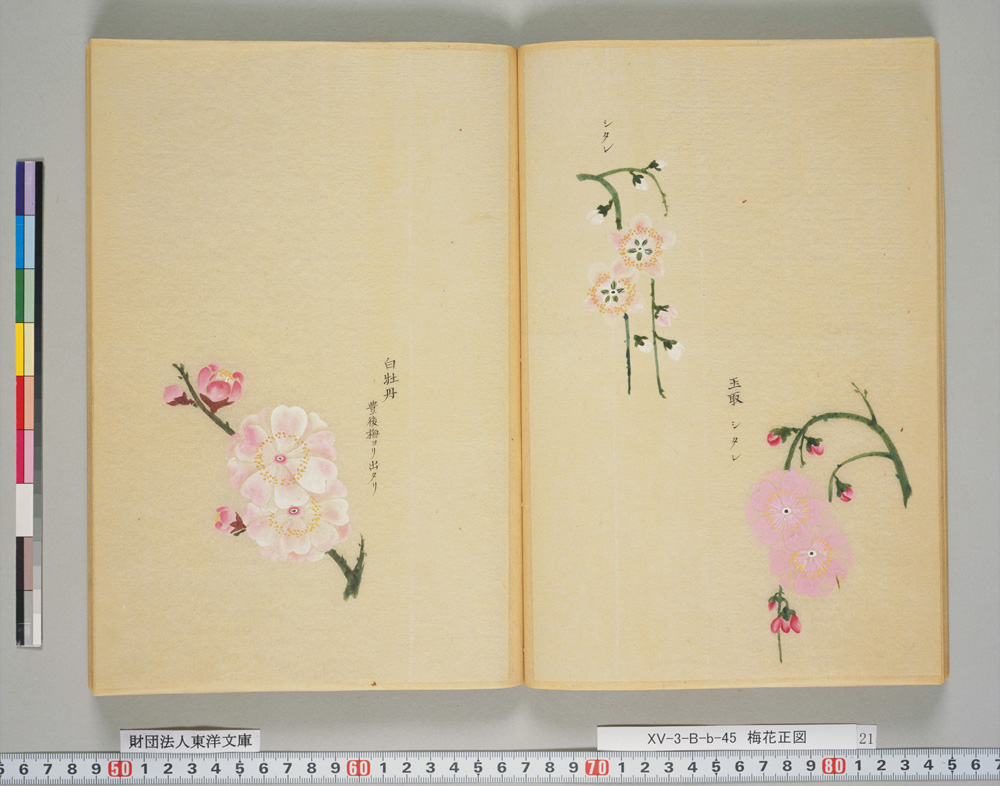 シタレ
玉取 シタレ
白牡丹
豊後梅ヨリ出タリ
財団法人東洋文庫
XV-3-B-b-45 梅花正図
21
5 6 7 8 9 50 1 2 3 4 5 6 7 8 9 60 1 2 3 4 5 6 7 8 9 70 1 2 3 4 5 6 7 8 9 80 1 2 3 4 5 6 7